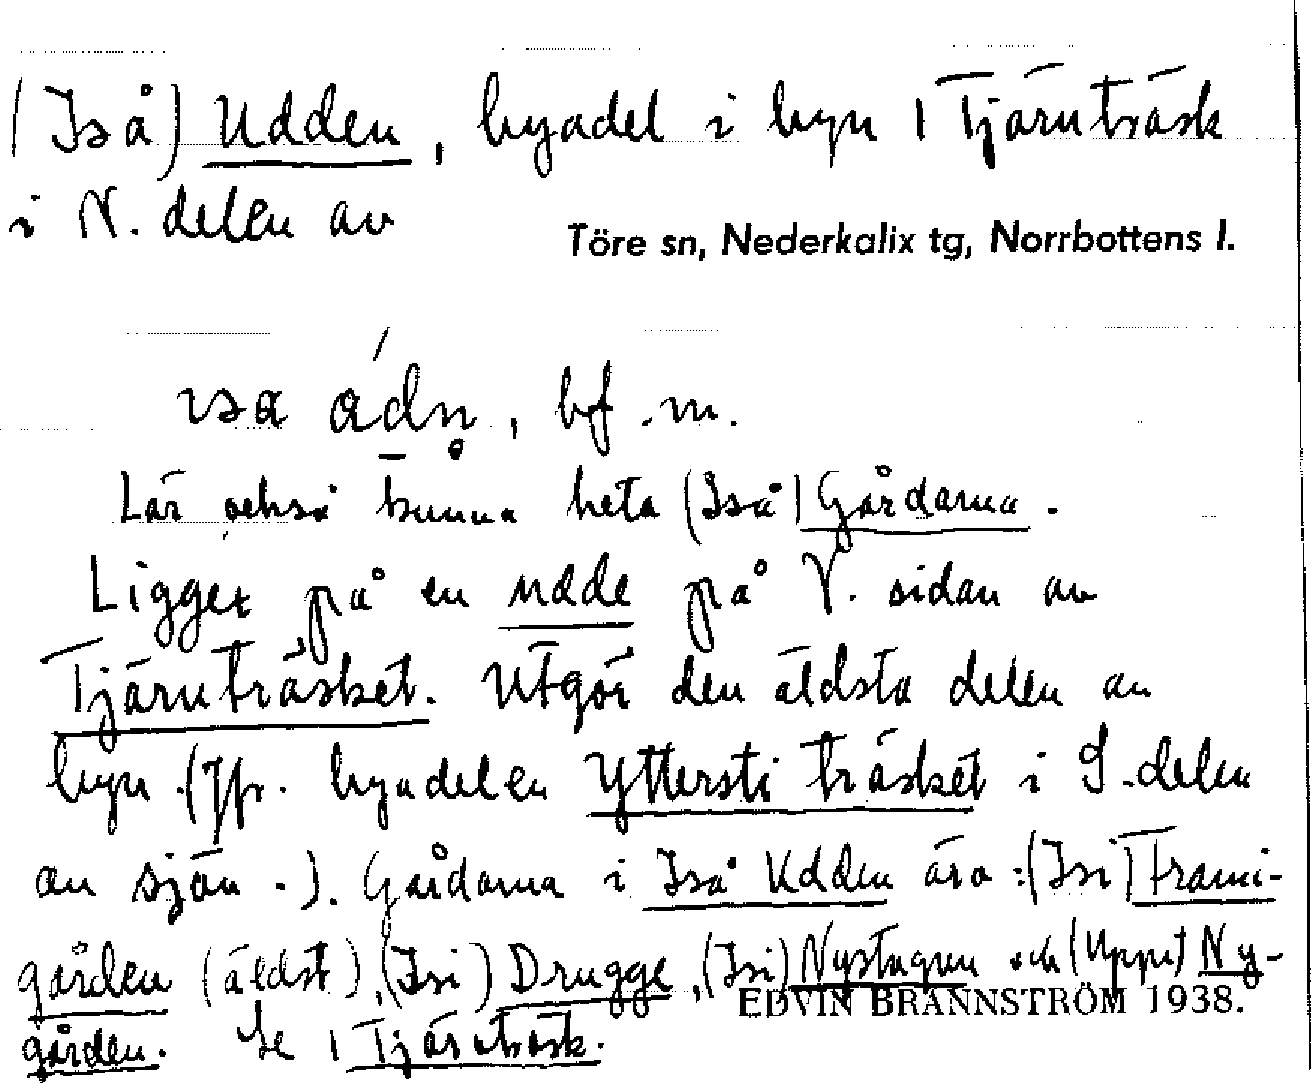 (Iså) Udden, byadel i byn 1 Tjärnträsk
i N. delen av
Töre sn, Nederkalix tg, Norrbottens l.
ɪsa ádn̥, bf. m.
Lär också kunna heta (Iså) Gårdarna.
Ligger på en udde på V. sidan av
Tjärnträsket. Utgör den äldsta delen av
byn. (Jfr. byadelen Yttersti träsket i S. delen
av sjön.). Gårdarna i Iså Udden äro: (Isi) Frami-
gården (äldst), (Isi) Drugge, (Isi) Nystugun och (Uppi) Ny-
EDVIN BRÄNNSTRÖM 1938.
gården. Se 1 Tjärnträsk.